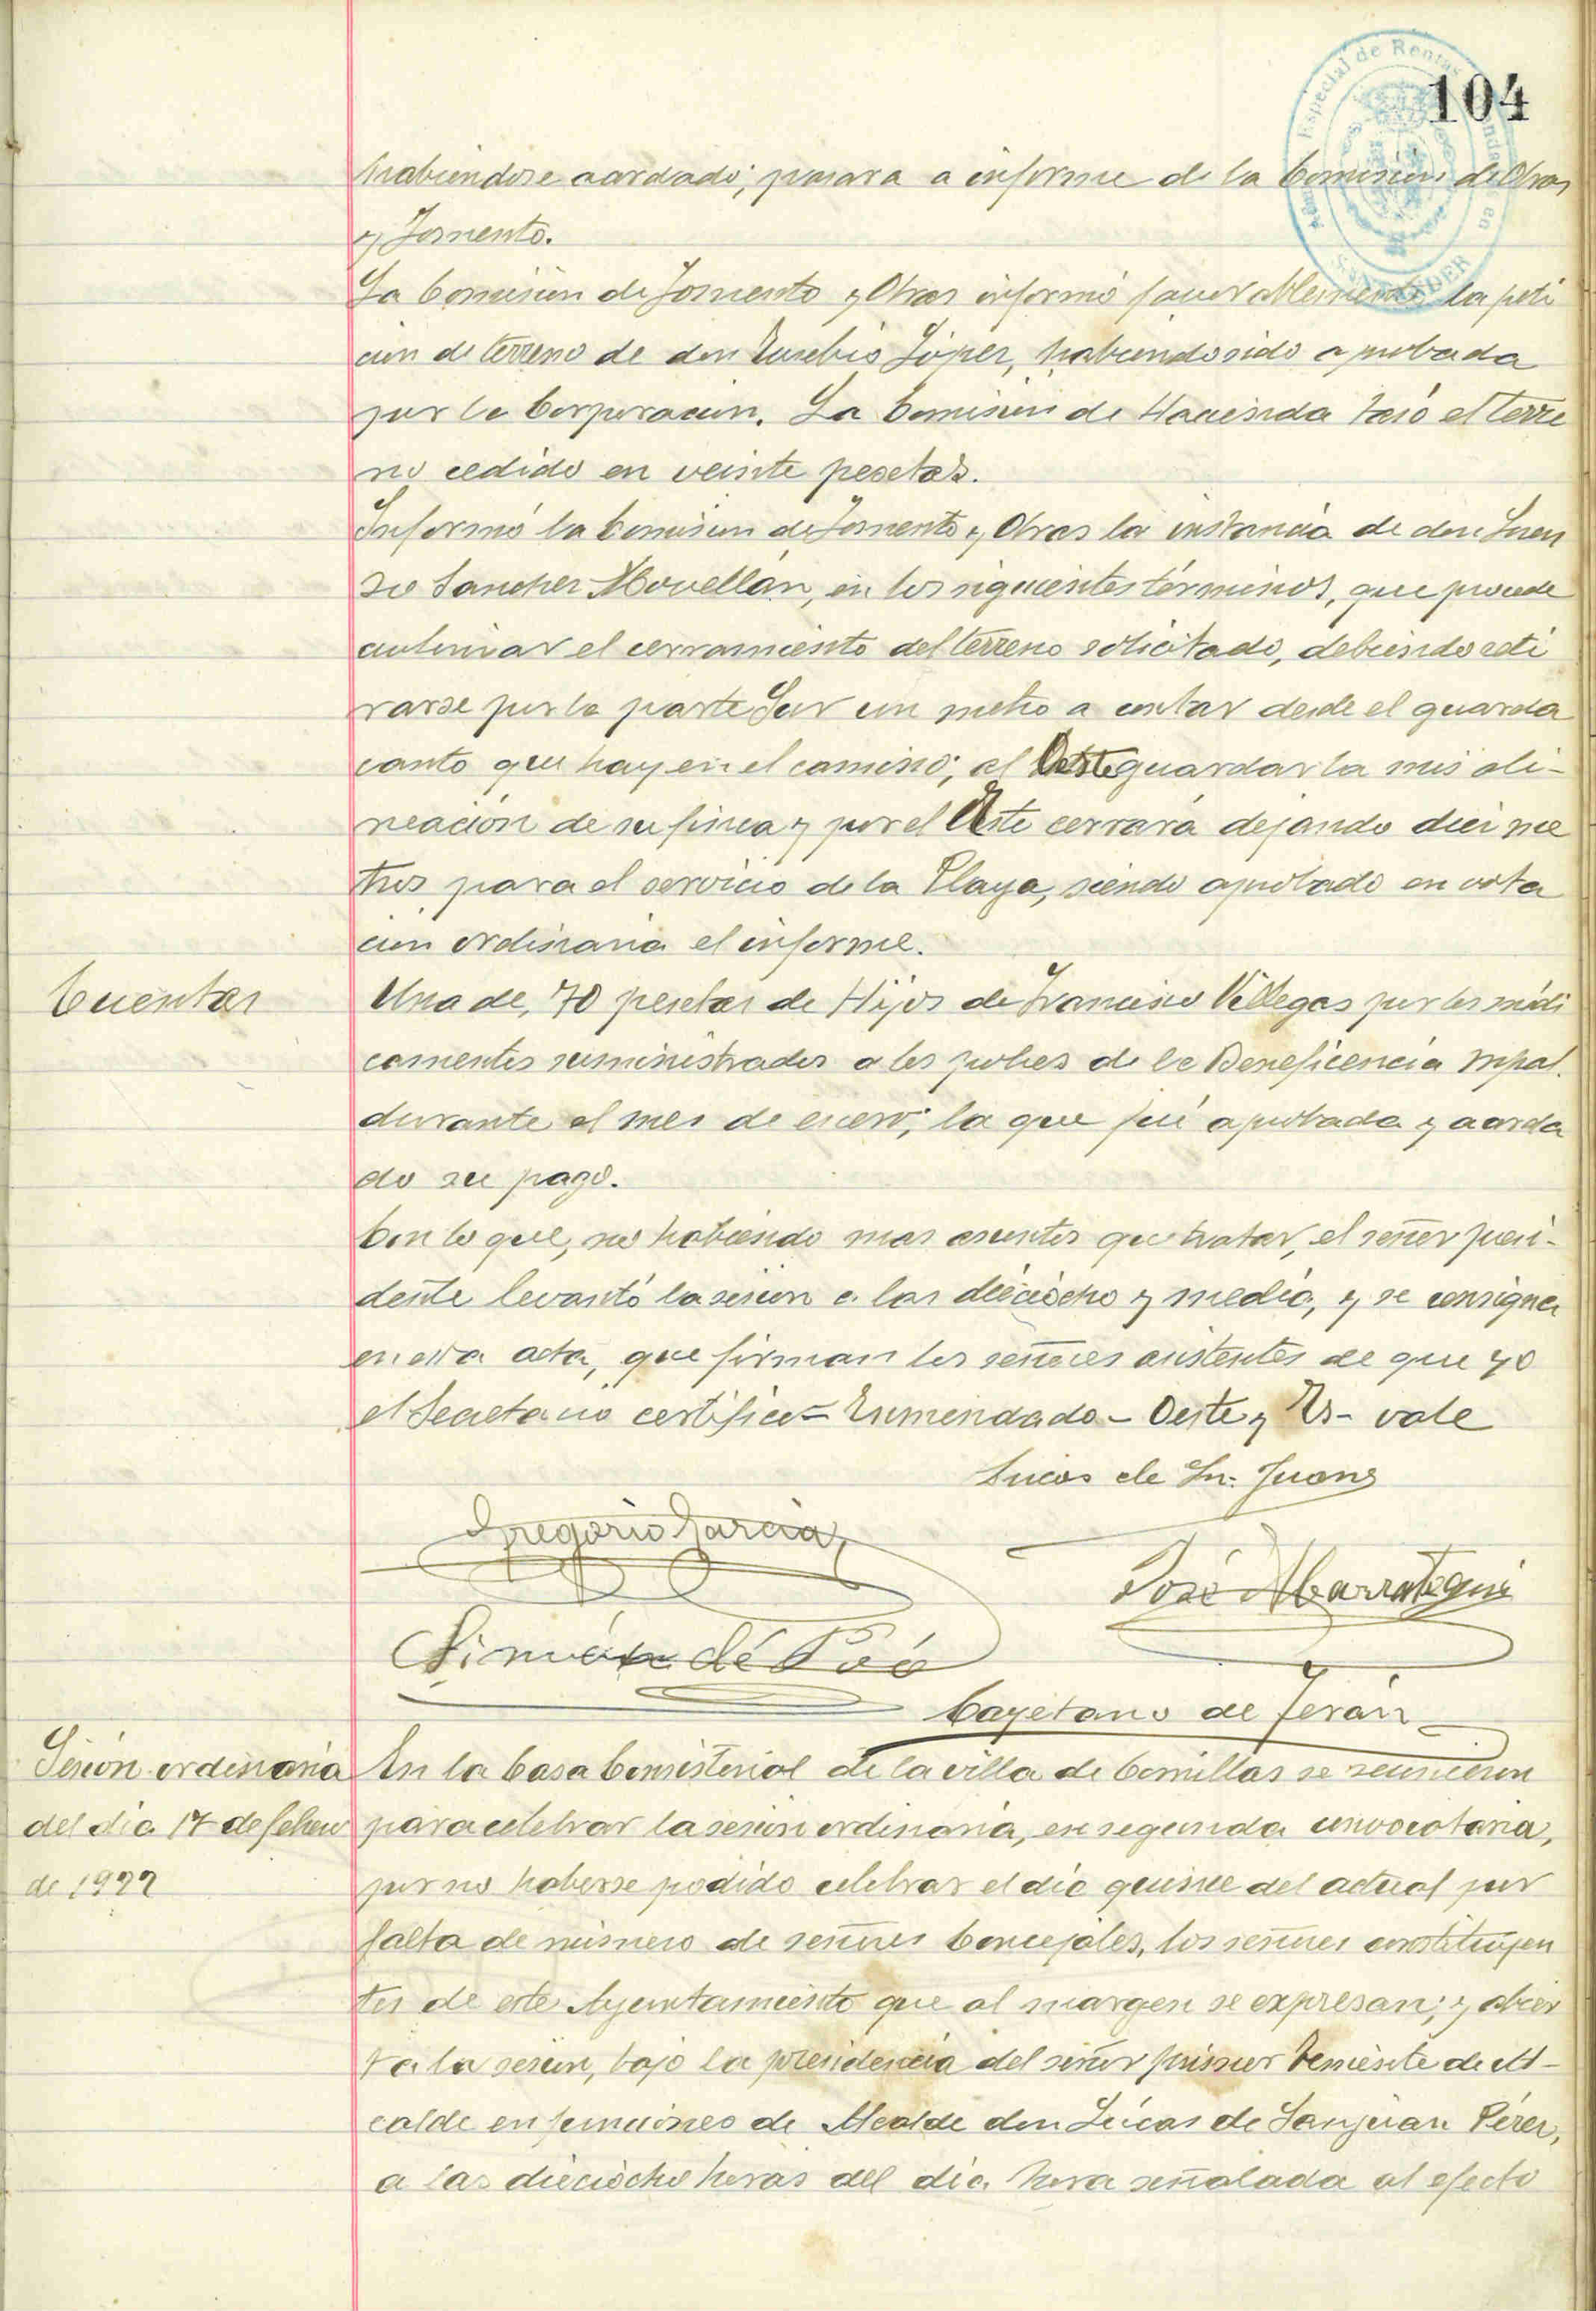 104
habiendose acordado, pasara a informe de la Comisión de Obras
y Fomento.
La Comisión de Fomento y Obras informó favorablemente la peti
cion de terreno de don Eusebio López, habiendo sido aprobada
por la Corporacion. La Comisión de Hacienda tasó el terre
no cedido en veinte pesetas.
Informó la Comision de Fomento y Obras la instancia de don
Sanchez Movellán, en los siguientes términos, que procede
autorizar el cerramiento del terreno solicitado, debiendo reti
rarse por la parte Sur un metro a contar desde el guarda
canto que hay en el camino; al Oeste guardar la mis ali-
neación de su finca y por el Este cerrará dejando diez me
tros para el servicio de la Playa, siendo aprobado en vota
cion ordinaria el informe.
Cuentas
Una de, 70 pesetas de Hijos de Francisco Villegas por los medi
camentos suministrados a los pobres de la Beneficencia mpal.
durante el mes de enero; la que fué aprobada y acorda
do su pago.
Con lo que, no habiendo mas asuntos que tratar, el señor presi-
dente levantó la sesion a las dieciocho y media, y se consigna
en esta acta, que firman los señores asistentes de que yo
el Secretario certifico = Enmendado - Oeste y Es - vale
Lucas de Sn. Juan
Gregorio Garcia
José Abarrategui
Simón de Poó
Cayetano de Terán
Sesión ordinaria
del dia 17 de febrero
de 1922
En la Casa Consistorial de la villa de Comillas se reunieron
para celebrar la sesion ordinaria, en segunda convocatoria,
por no haberse podido celebrar el día quince del actual por
falta de número de señores Concejales, los señores constituyen
tes de este Ayuntamiento que al margen se expresan; y abier
ta la sesion, bajo la presidencia del señor primer Teniente de Al-
calde en funciones de Alcalde don Lúcas de Sanjuan Pérez,
a las dieciocho horas del dia hora señalada al efecto